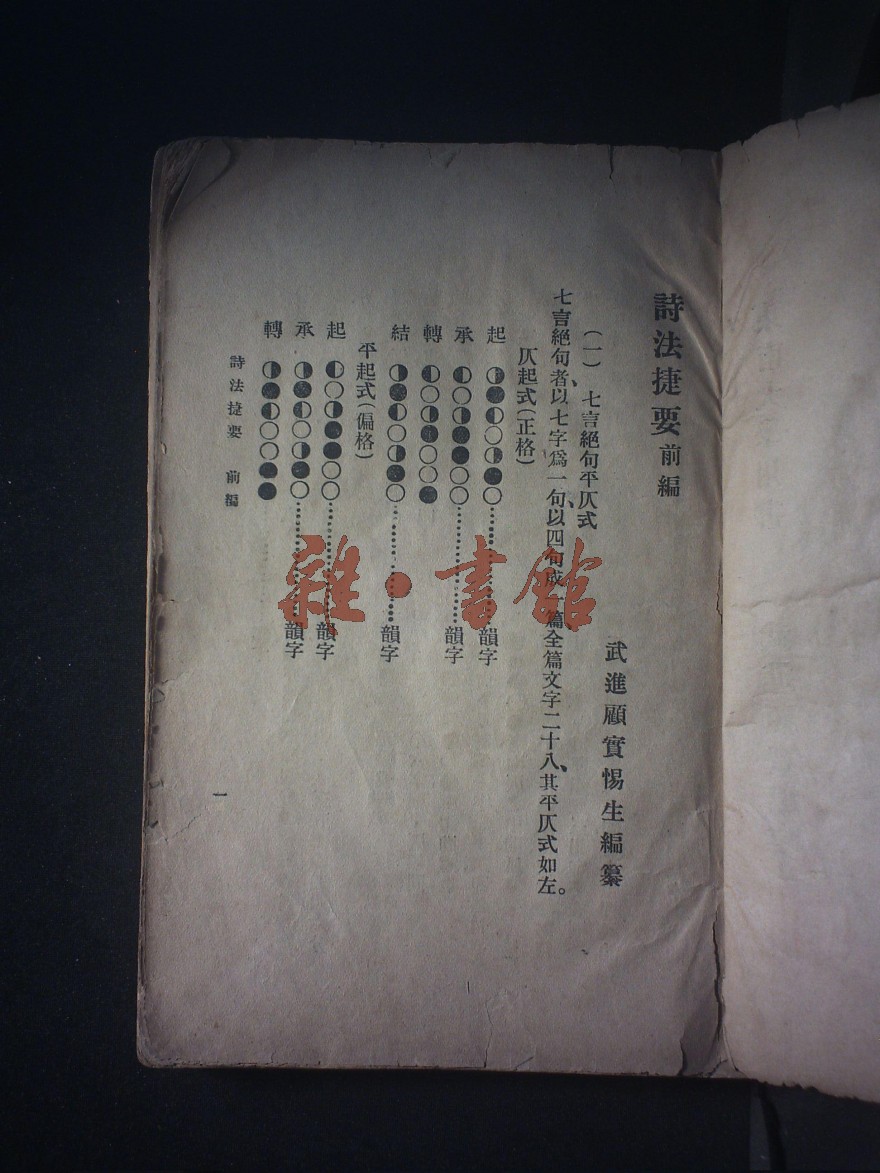 詩法捷要 前編
武進顧實惕生編纂
(一) 七言絕句平仄式
七言絕句者、以七字爲一句、以四句成一篇全篇文字二十八、其平仄式如左。
仄起式(正格)
起 ◐●◐○◐●○……韻字
承 ◐○◐●●○○……韻字
轉 ◐○◐●○○●
結 ◐●◐○◐●○……韻字
平起式(偏格)
起 ◐○◐●●○○……韻字
承 ◐●◐○◐●○……韻字
轉 ◐●◐○○●●
詩法捷要 前編
一
雜·書館